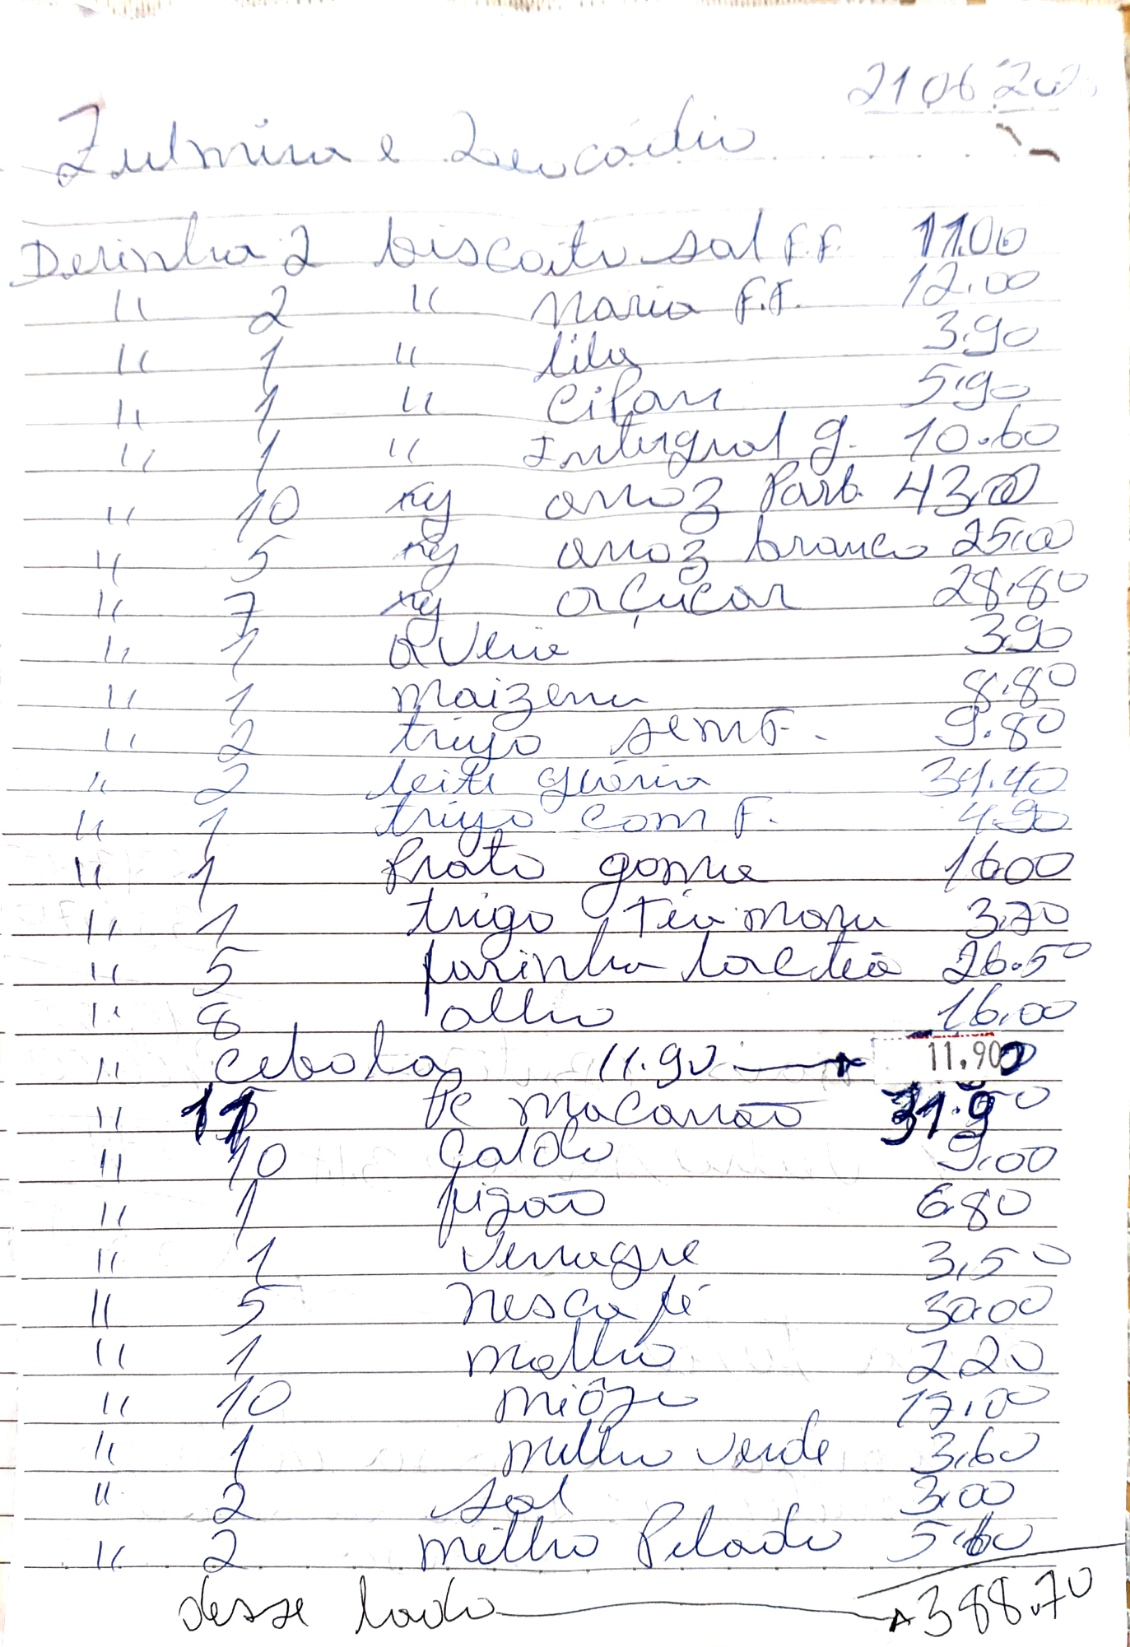 21 06 202
Zulmira e Leocádio
Derinha 2 biscoito sal F.F. 11.00
" 2 " Maria F.F. 12.00
" 1 " lily 3.90
" 1 " Cipan 5.90
" 1 " Integral g. 10.60
" 10 kg arroz Parb. 43,00
" 5 kg arroz branco 25,00
" 7 kg açúcar 28,80
" 1 aveia 3,90
" 1 maizena 8,80
" 2 trigo sem F. 9.80
" 2 leite glória 34.40
" 1 trigo com F. 4.90
" 1 Prato goma 16.00
" 1 trigo 3,70
" 5 farinha lactea 26.50
" 8 alho 16,00
" cebola 11.90 → 11.90
" 11 Pc macarrão 31.90
" 10 Caldo 9,00
" 1 fijão 6.80
" 1 vinagre 3,50
" 5 Nescafé 30.00
" 1 molho 2.20
" 10 miojo 17,00
" 1 milho verde 3,60
" 2 sal 3,00
" 2 milho Pilado 5.60
desse lado → 388.70